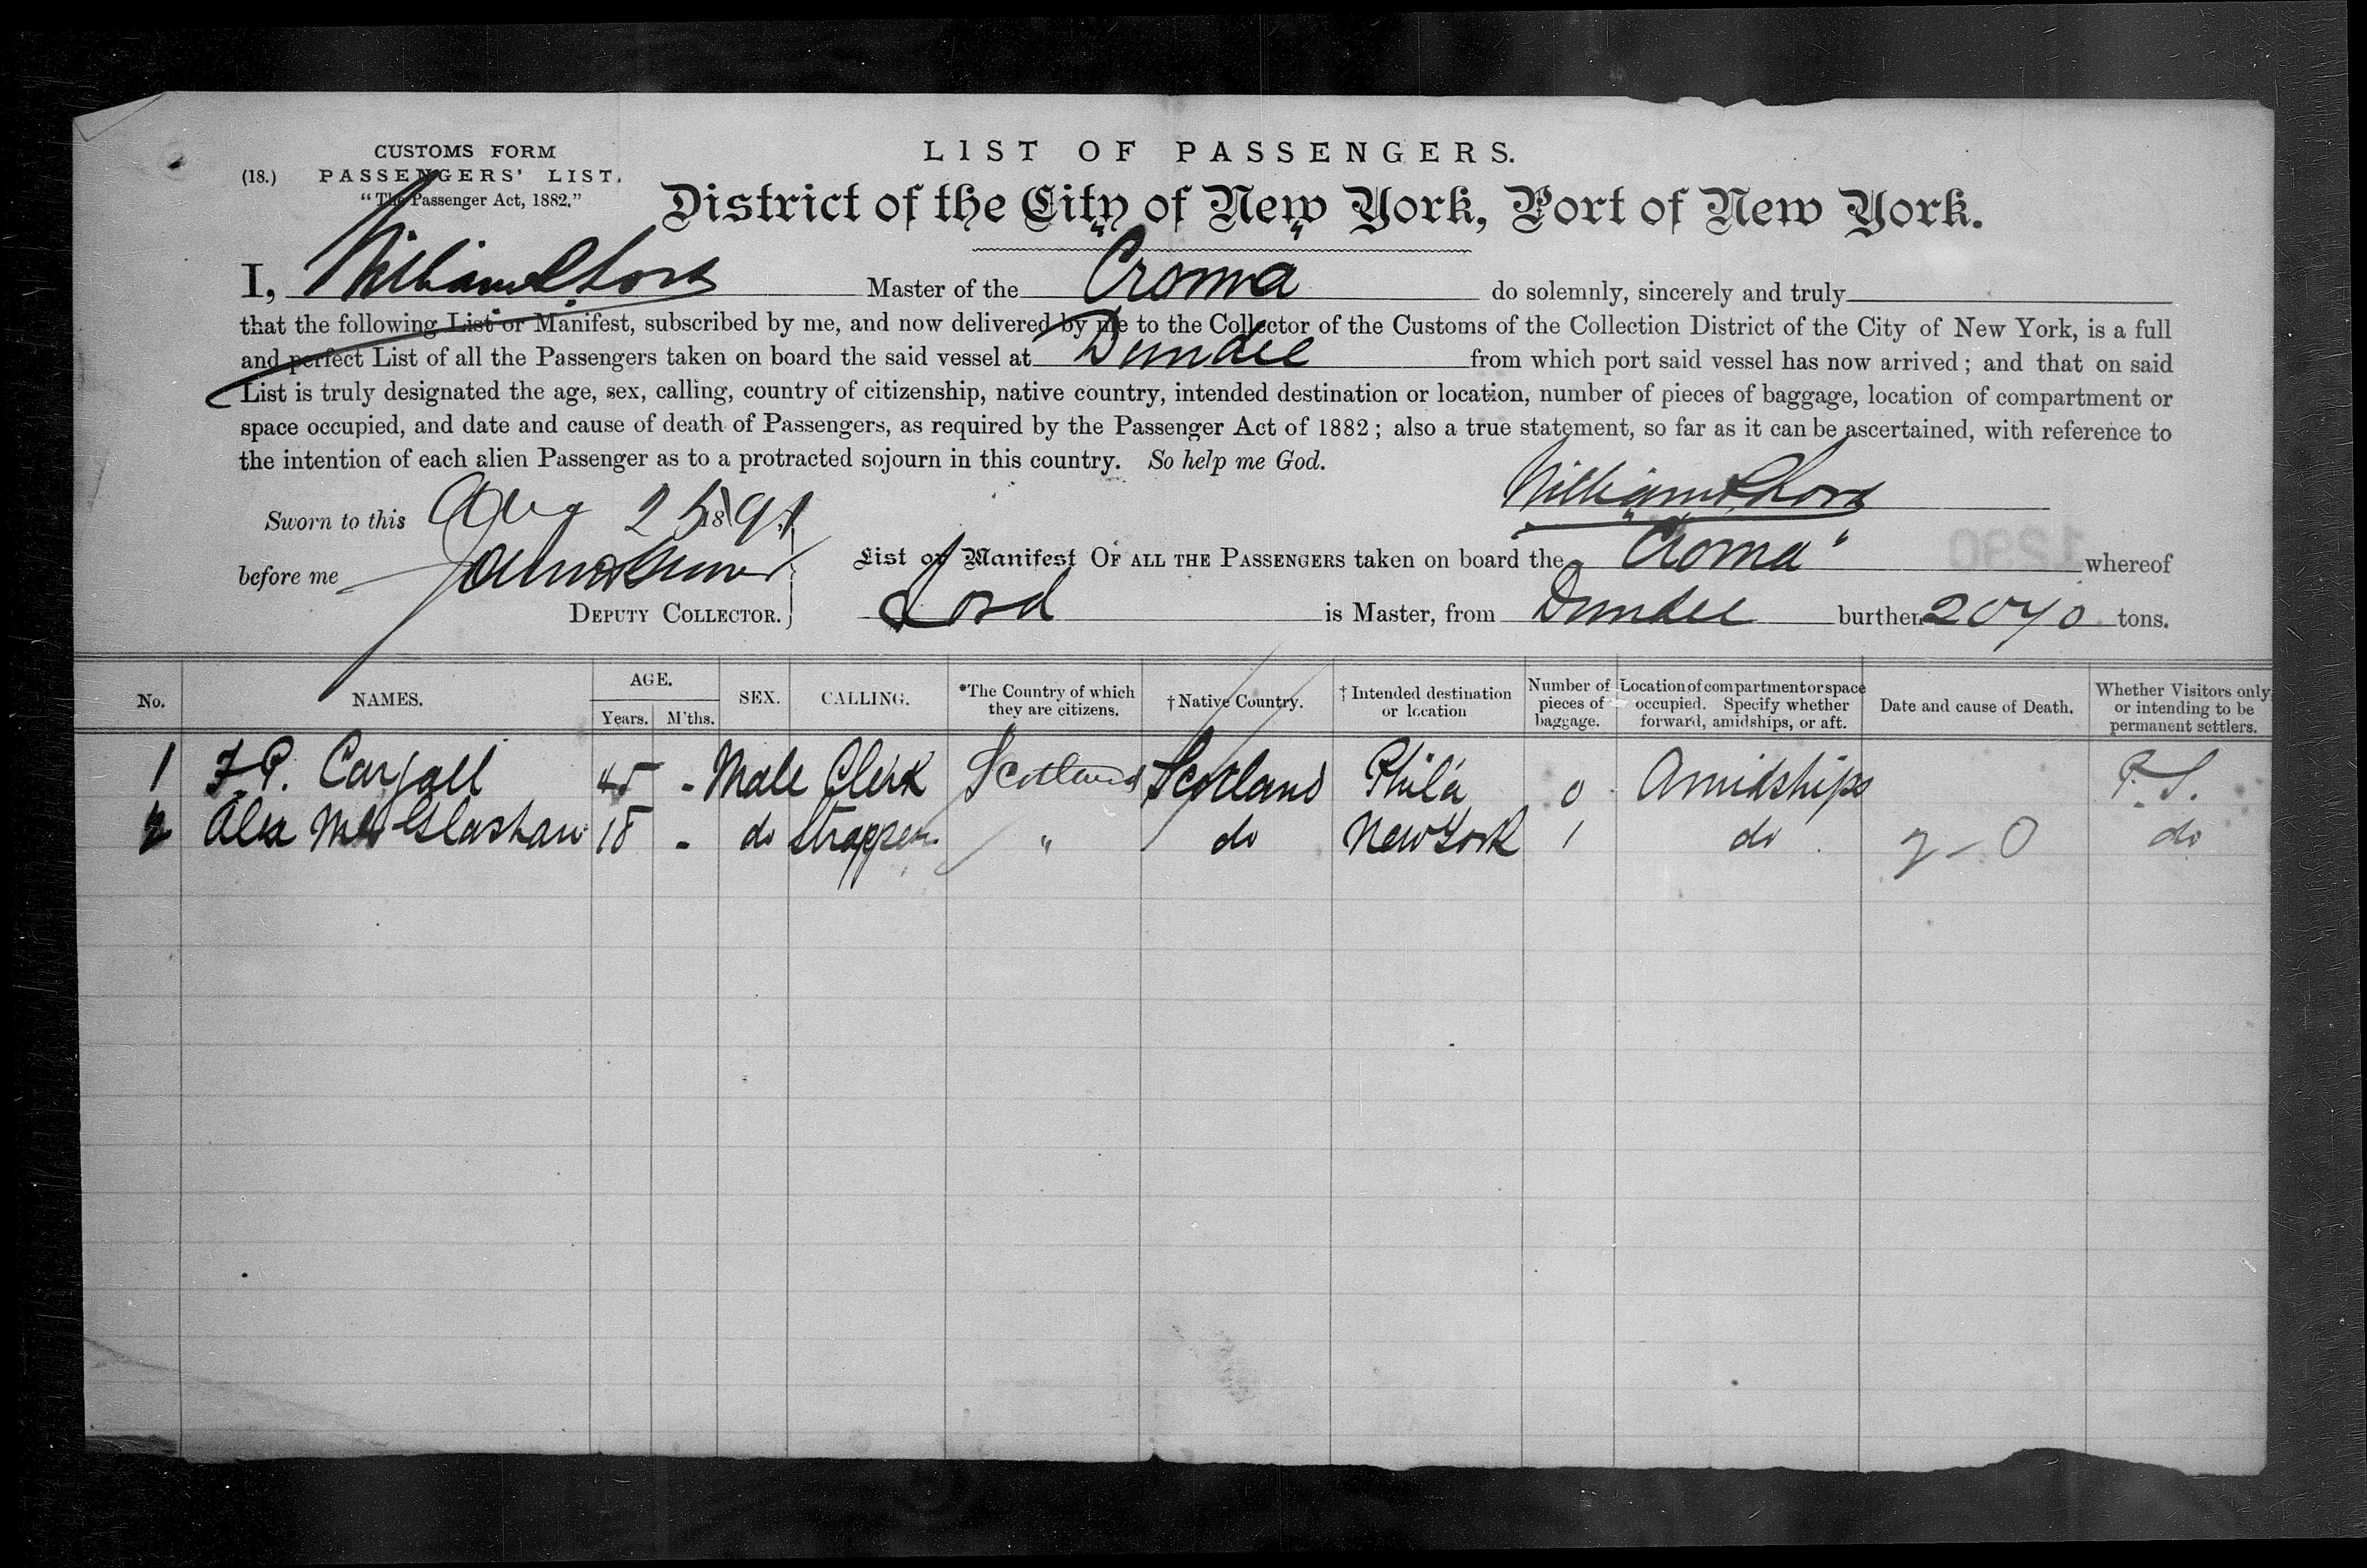 CUSTOMS FORM
(18.) PASSENGERS' LIST.
"The Passenger Act, 1882."
LIST OF PASSENGERS.
District of the City of New York, Port of New York.
I, William Lord Master of the "Croma" do solemnly, sincerely and truly
that the following List or Manifest, subscribed by me, and now delivered by me to the Collector of the Customs of the Collection District of the City of New York, is a full
and perfect List of all the Passengers taken on board the said vessel at Dundee from which port said vessel has now arrived; and that on said
List is truly designated the age, sex, calling, country of citizenship, native country, intended destination or location, number of pieces of baggage, location of compartment or
space occupied, and date and cause of death of Passengers, as required by the Passenger Act of 1882; also a true statement, so far as it can be ascertained, with reference to
the intention of each alien Passenger as to a protracted sojourn in this country. So help me God.
William Lord
Sworn to this Aug 25 1891
before me
DEPUTY COLLECTOR.
List or Manifest OF ALL THE PASSENGERS taken on board the "Croma" whereof
Lord is Master, from Dundee burthen 2070 tons.
1290
No. NAMES. AGE. Years. M'ths. SEX. CALLING. *The Country of which they are citizens. †Native Country. †Intended destination or location Number of pieces of baggage. Location of compartment or space occupied. Specify whether forward, amidships, or aft. Date and cause of Death. Whether Visitors only or intending to be permanent settlers.
1 F.P. Cargall 45 - Male Clerk Scotland Scotland Phila 0 Amidships P.S.
2 Alex Glashan 18 - do Strapper " do New York 1 do 2-0 do